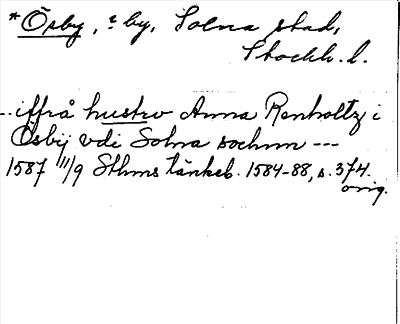 *Ösby, ? by, Solna stad,
Stockh. l.
--iffrå hustrv Anna Renholtz i
Ösbij vdi Solna sochnn ---
1587 III/9 Sthms tänkeb. 1584-88, s. 374.
orig.